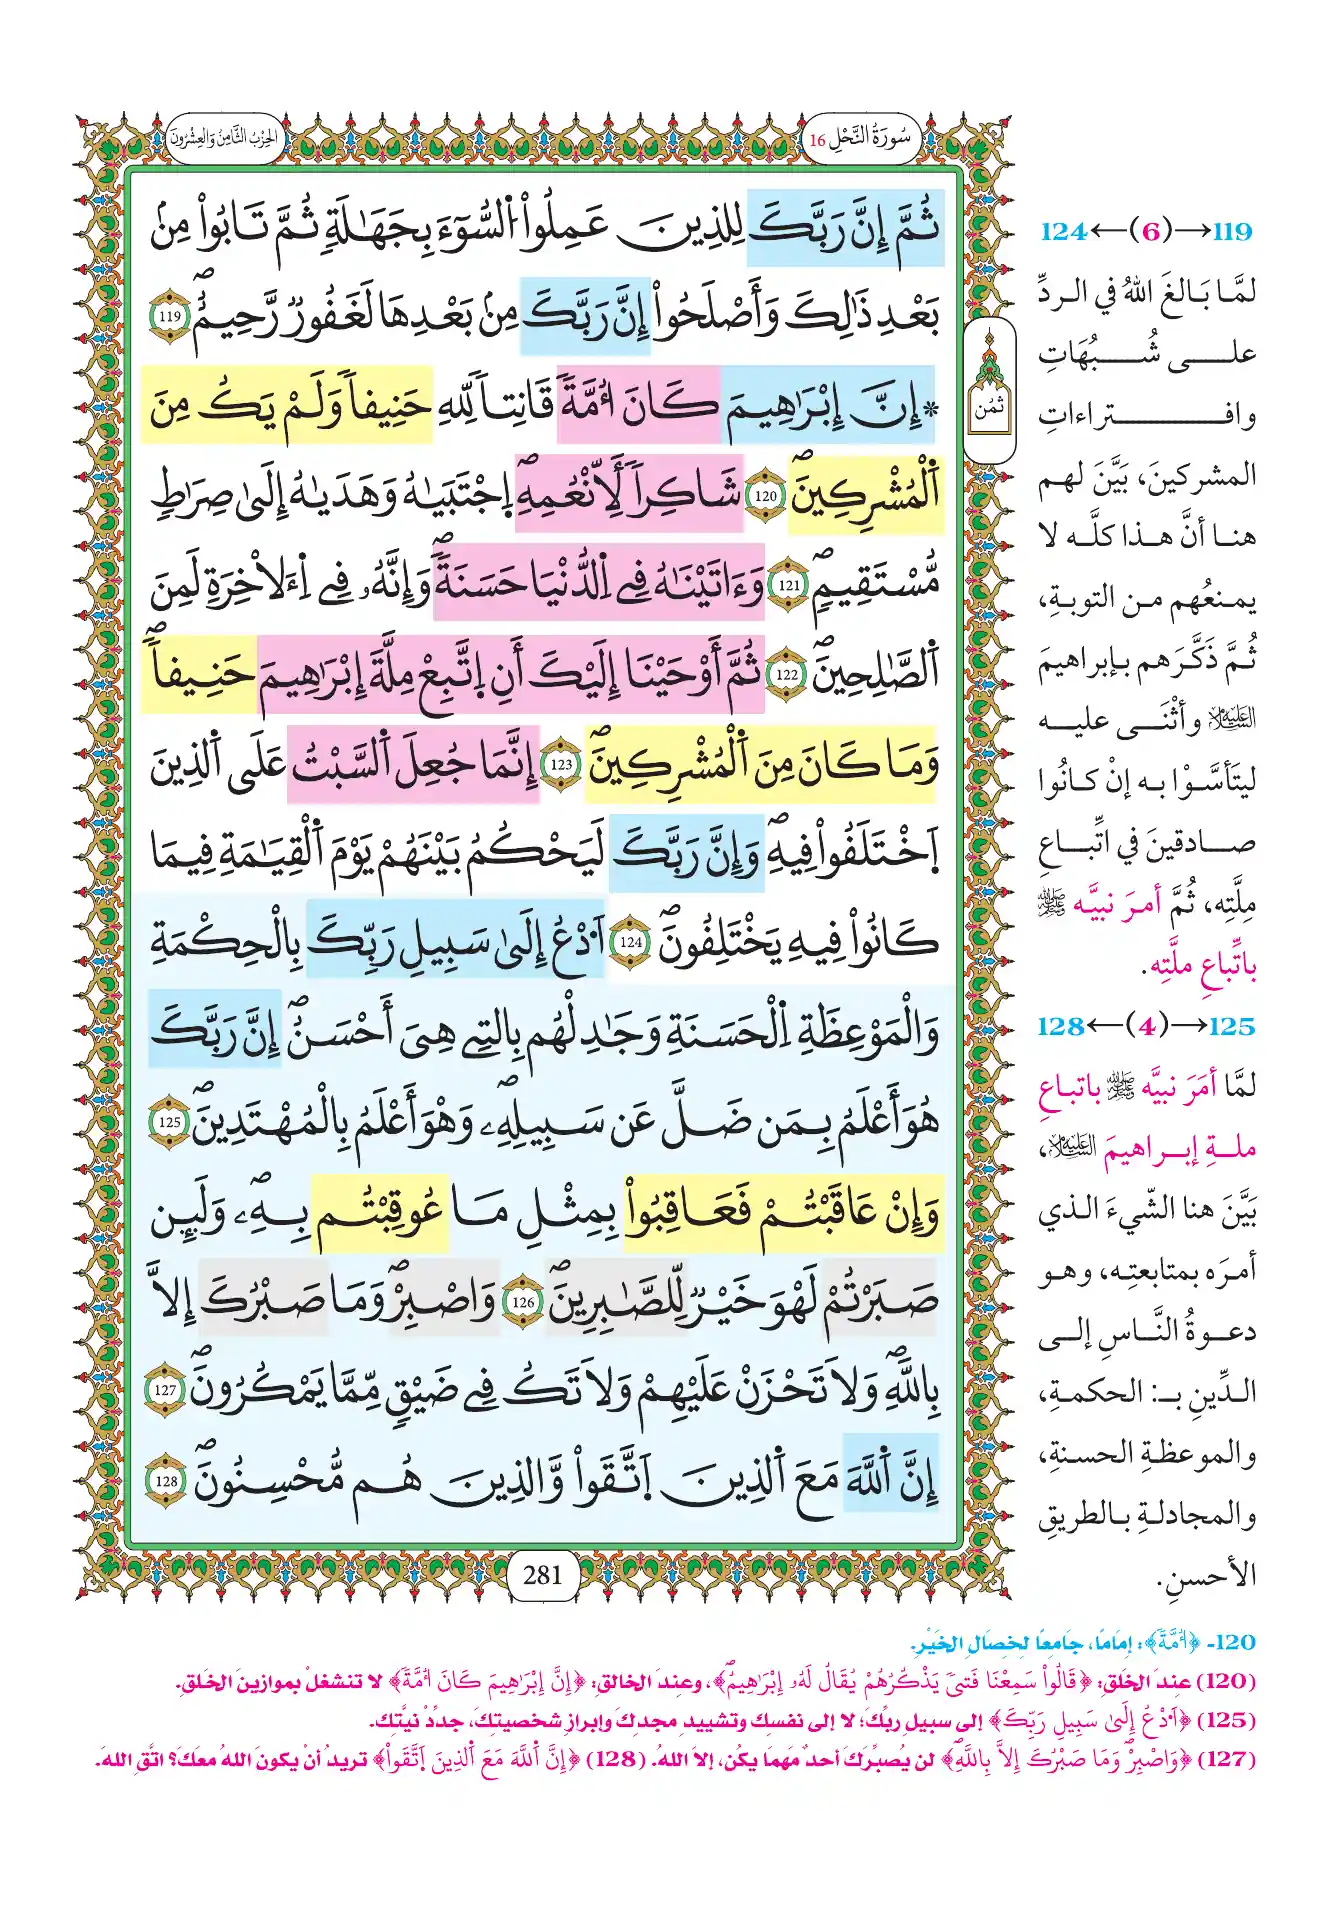 سُورَةُ النَّحْلِ 16
الحِزْبُ الثَّامِنُ وَالعِشْرُونَ
ثُمَّ إِنَّ رَبَّكَ لِلذِينَ عَمِلُواْ السُّوٓءَ بِجَهَٰلَةٖ ثُمَّ تَابُواْ مِنۢ
بَعْدِ ذَٰلِكَ وَأَصْلَحُوٓاْ إِنَّ رَبَّكَ مِنۢ بَعْدِهَا لَغَفُورٞ رَّحِيمٞ 119
* إِنَّ إِبْرَٰهِيمَ كَانَ أُمَّةٗ قَانِتاٗ لِّلهِ حَنِيفاٗ وَلَمْ يَكُ مِنَ
اَلْمُشْرِكِينَ 120 شَاكِراٗ لِّأَنْعُمِهِ اِجْتَبَيٰهُ وَهَدَيٰهُ إِلَىٰ صِرَٰطٖ
مُّسْتَقِيمٖ 121 وَءَاتَيْنَٰهُ فِے اِلدُّنْيَا حَسَنَةٗ وَإِنَّهُۥ فِے اِءَلَاخِرَةِ لَمِنَ
اَلصَّٰلِحِينَ 122 ثُمَّ أَوْحَيْنَا إِلَيْكَ أَنِ اِتَّبِعْ مِلَّةَ إِبْرَٰهِيمَ حَنِيفاٗ
وَمَا كَانَ مِنَ اَلْمُشْرِكِينَ 123 إِنَّمَا جُعِلَ اَلسَّبْتُ عَلَى اَلذِينَ
اَخْتَلَفُواْ فِيهِ وَإِنَّ رَبَّكَ لَيَحْكُمُ بَيْنَهُمْ يَوْمَ اَلْقِيَٰمَةِ فِيمَا
كَانُواْ فِيهِ يَخْتَلِفُونَ 124 اَدْعُ إِلَىٰ سَبِيلِ رَبِّكَ بِالْحِكْمَةِ
وَالْمَوْعِظَةِ اِلْحَسَنَةِ وَجَٰدِلْهُم بِالتِے هِىَ أَحْسَنُ إِنَّ رَبَّكَ
هُوَ أَعْلَمُ بِمَن ضَلَّ عَن سَبِيلِهِۦ وَهْوَ أَعْلَمُ بِالْمُهْتَدِينَ 125
وَإِنْ عَاقَبْتُمْ فَعَاقِبُواْ بِمِثْلِ مَا عُوقِبْتُم بِهِۦ وَلَئِن
صَبَرْتُمْ لَهْوَ خَيْرٞ لِّلصَّٰبِرِينَ 126 وَاصْبِرْ وَمَا صَبْرُكَ إِلَّا
بِاللَّهِ وَلَا تَحْزَنْ عَلَيْهِمْ وَلَا تَكُ فِے ضَيْقٖ مِّمَّا يَمْكُرُونَ 127
إِنَّ اَللَّهَ مَعَ اَلذِينَ اَتَّقَواْ وَّالذِينَ هُم مُّحْسِنُونَ 128
281
ثُمُن
119→(6)←124
لمَّا بَالغَ اللهُ في الردِّ
على شُبُهَاتِ
وافتراءاتِ
المشركينَ، بَيَّنَ لهم
هنا أنَّ هذا كلَّه لا
يمنعُهم من التوبةِ،
ثُمَّ ذَكَّرَهم بإبراهيمَ
عليه السلام وأثْنَى عليه
ليتَأسَّوْا به إنْ كانُوا
صادقينَ في اتِّباعِ
مِلَّتِه، ثُمَّ أمرَ نبيَّه ﷺ
باتِّباعِ ملَّتِه.
125→(4)←128
لمَّا أمَرَ نبيَّه ﷺ باتباعِ
ملةِ إبراهيمَ عليه السلام،
بَيَّنَ هنا الشّيءَ الذي
أمرَه بمتابعتِه، وهو
دعوةُ النَّاسِ إلى
الدِّينِ بـ: الحكمةِ،
والموعظةِ الحسنةِ،
والمجادلةِ بالطريقِ
الأحسنِ.
120- ﴿أُمَّةٗ﴾: إمَامًا، جَامِعًا لخِصَالِ الخَيْرِ.
(120) عندَ الخَلقِ: ﴿قَالُواْ سَمِعْنَا فَتىٗ يَذْكُرُهُمْ يُقَالُ لَهُۥ إِبْرَٰهِيمُ﴾، وعندَ الخالقِ: ﴿إِنَّ إِبْرَٰهِيمَ كَانَ أُمَّةٗ﴾ لا تنشغلْ بموازينِ الخَلقِ.
(125) ﴿اَدْعُ إِلَىٰ سَبِيلِ رَبِّكَ﴾ إلى سبيلِ ربِّكَ؛ لا إلى نفسِك وتشييدِ مجدكَ وإبرازِ شخصيتِكَ، جدِّدْ نيَّتكَ.
(127) ﴿وَاصْبِرْ وَمَا صَبْرُكَ إِلَّا بِاللَّهِ﴾ لن يُصبِّرَكَ أحدٌ مَهمَا يكُن، إلا اللهُ. (128) ﴿إِنَّ اَللَّهَ مَعَ اَلذِينَ اَتَّقَواْ﴾ تريدُ أنْ يكونَ اللهُ معَكَ؟ اتَّقِ اللهَ.